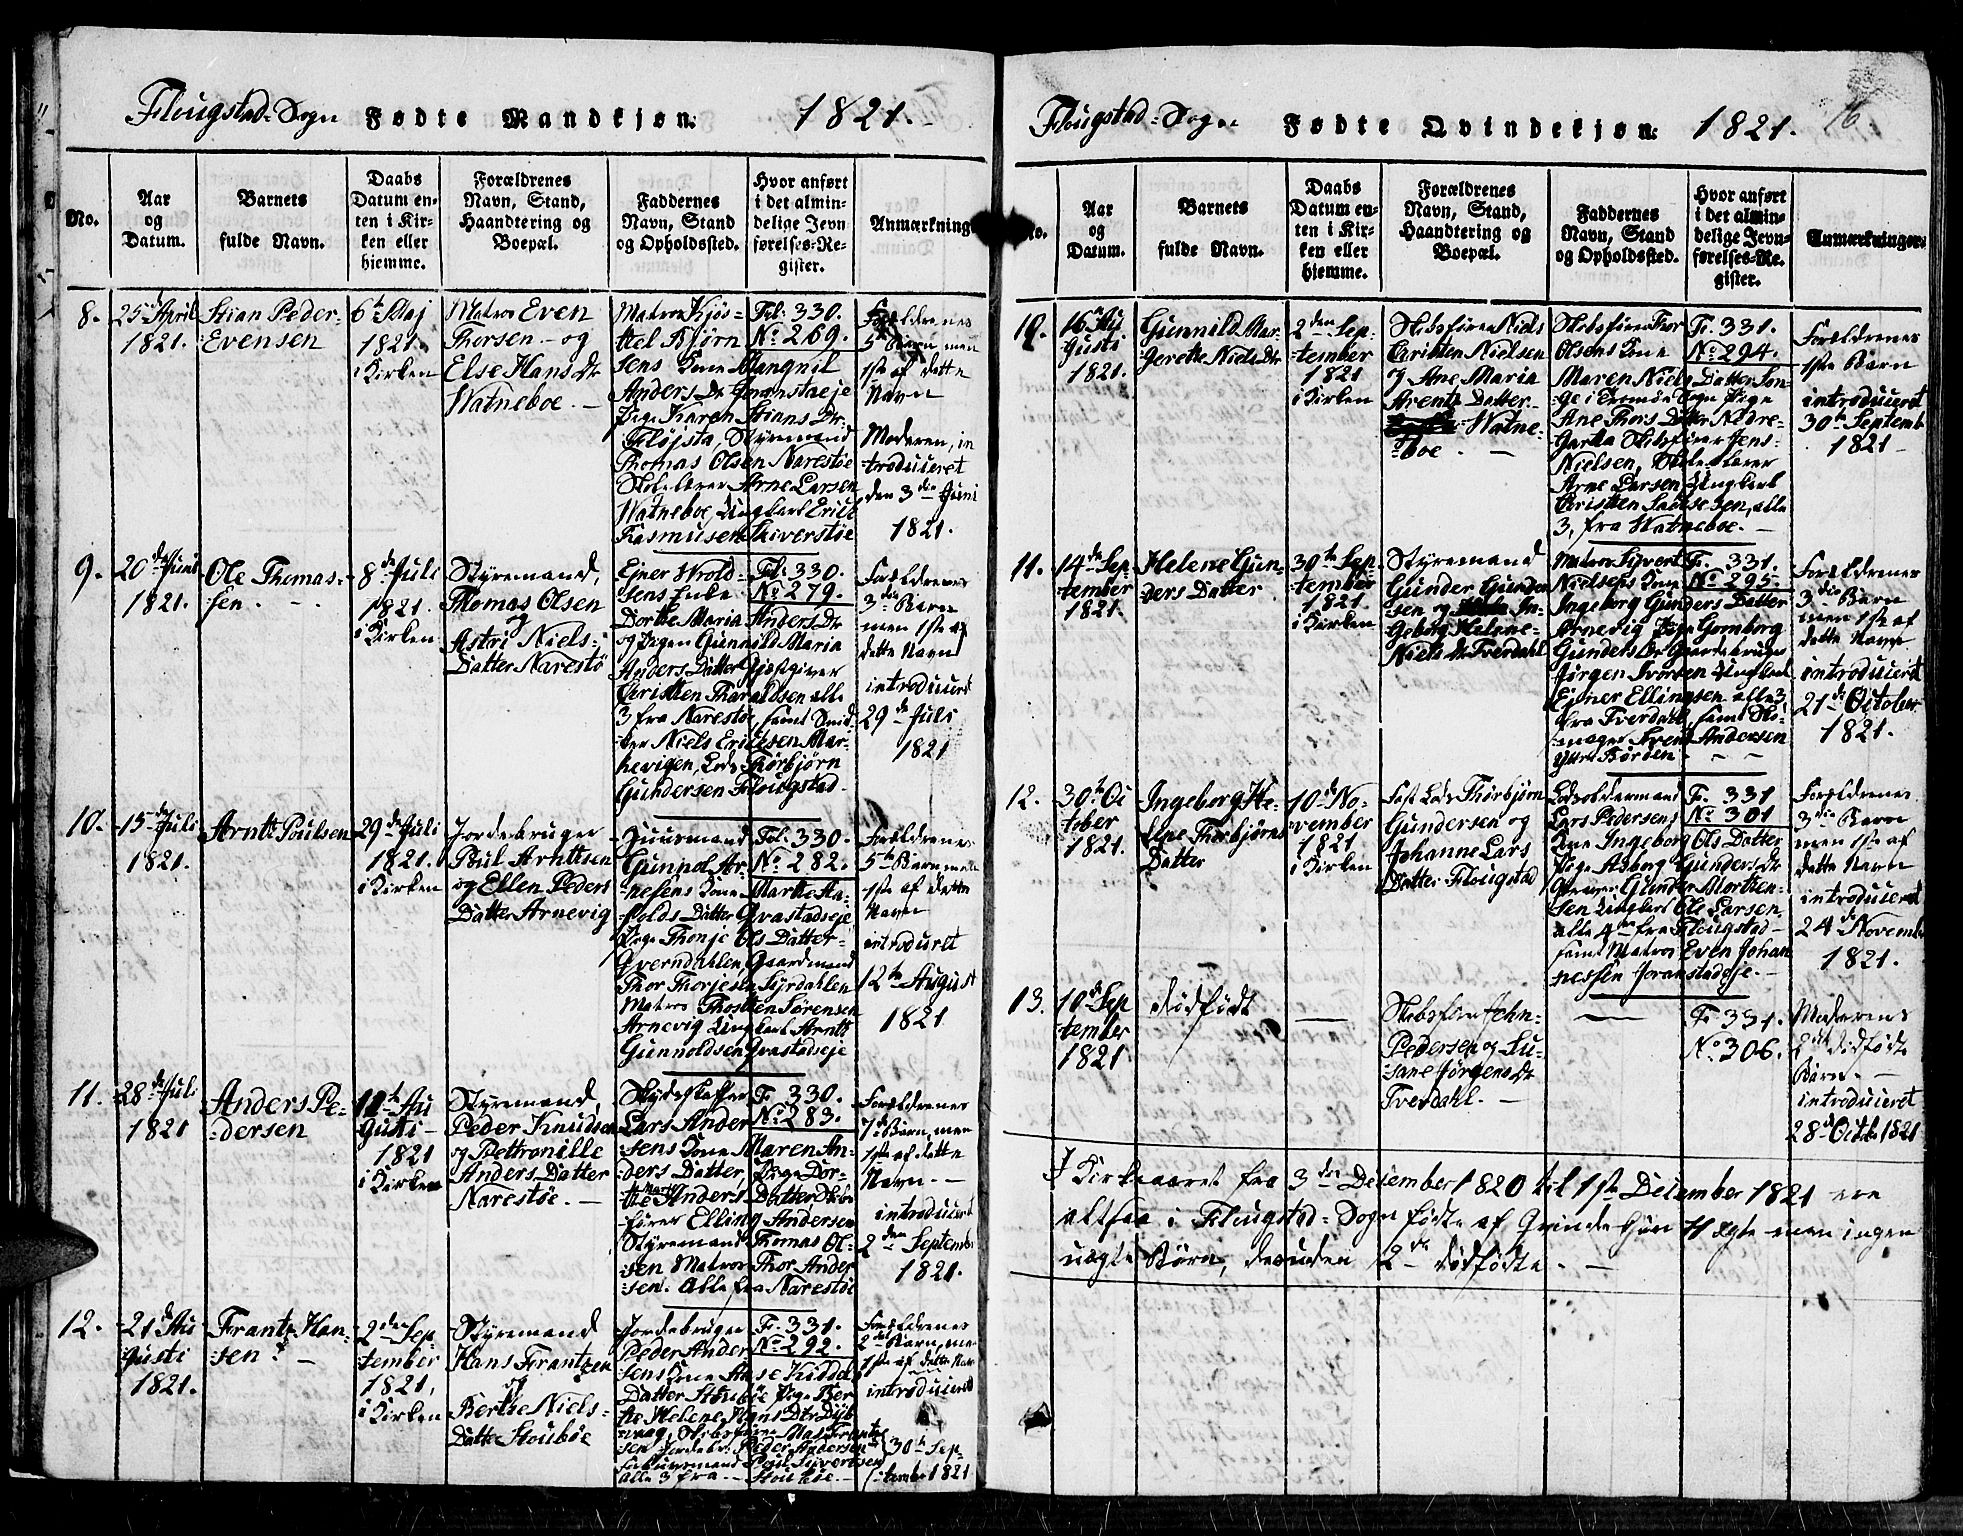 Flougstad-Sogn Fødte Mandkjøn: 1821.
No.
Aar
og
Datum.
Barnets
fulde Navn.
Daabs
Datum en-
ten i Kir-
ken eller
hjemme.
Forældrenes
Navn, Stand,
Haandtering og
Boepæl.
Faddernes
Navn, Stand
og Opholdssted.
Hvor anført
i det almin-
delige Jevn
førelses-Re-
gister.
Anmærkning
8.
25de April
1821.
Stian Peder-
Evensen
6te Maj
1821.
i Kirken
Matros Even
Thorsen - og
Else Hans Dr
Watneboe. -
Matros Kjøs-
ttel Bjørn
sens Kone Mangnil
Anders Dr
Pige Karen Stians Dr
Fløjsta, Styremand
Thomas Olsen Narestøe
Skolelærer Arne Larsen
Watneboe, Ungkarl Erich
Rasmusen
Fol: 330.
No 269.
Forældrenes
5te Barn men
1ste af dette
Navn
Moderen in
troduceret
den 3die Juni
1821.
9.
20de Juni
1821.
Ole Thomas-
sen. - -
8de Juli
1821.
i Kirken
Styremand,
Thomas Olsen
og
Astri Niels-
Datter Narestø
Ejner Wrold-
sens Enke
Dorthe Maria Anders Dr
og Pigen Gunnild Maria
Anders Datter Gjestgiver
Christen Tharaldsen alle
3 fra Narestøe, samt Smid
Niels Ericksen Mar-
kevigen, Lods Thorbjørn
Gundersen Flougstad.
Fol: 330.
No 279.
Forældrenes
3die Barn
men 1ste af
dette Navn
introduceret
29de Juli
1821
10.
15de Juli
1821.
Arnt Poulsen
29de Juli
1821.
i Kirken
Jordebruger
Poul Arntsen
og Ellen Peders
Datter Arnevig
Huusmand
Gunnol Ar-
nesens Kone Marthe Ha-
Datter Qvastadseje
Pige Thonje Ols Datter-
Qverndahlen, Gaardmand
Thor Thorjesen
Matros Thosten Sørensen
Arnevig Ungkarl Arnt
Gunnoldsen Qvastadseje
Fol: 330.
No 282.
Forældrenes
5te Barn men
1ste af dette
Navn
introduceret
12te August
1821
11.
28de Juli
1821
Anders Pe-
dersen
12te Au
gusti -
1821
i Kirken
Styremand
Peder Knudsen
og Pettronille
Anders Datter
Narestøe. -
Lars Ander
sens Kone Maren An-
ders Datter, Pige Dor-
the Maria Anders Datter Skibs
fører Elling Andersen
Styremand Thomas Ol-
sen Matros Thor Ander
sen. Alle fra Narestøe
Fo: 330.
No 283.
Forældrenes
7de Barn, men
1ste af dette
Navn. -
introduceret
2den Septemb
1821.
12.
21de Au
gusti
1821.
Frantz Han-
sen. -
2den Sep-
tember
1821,
i Kirken
Styremand
Hans Frantzen
og
Berthe Niels-
Datter Stoubøe
Jordebruger
Peder Ander
sens Kone
Datter Stoubøe Pige Ber
the Helene Hans Dtr Dyb
vaag, Skibsfører Mas Frantz
sen Jordebr: Peder Andersen
Poul Sivertsen
alle 3 fra - Stoubøe -
Fo: 331.
No 292.
Forældrenes
2det Barn, men
1ste af dette Nav
introduceret
30te Sep-
tember 1821
Flougstad-Sogn Fødte Qvindekjøn: 1821. 16
No.
Aar
og
Datum.
Barnets
fulde Navn.
Daabs
Datum en-
ten i Kir-
ken eller
hjemme.
Forældrenes
Navn, Stand,
Haandtering og
Boepæl.
Faddernes
Navn, Stand
og Opholdssted.
Hvor anført
i det almin-
delige Jevn-
førelses-Re-
gister.
Anmærkninger.
10.
16de Au
gusti
1821.
Gunnild Mar-
gerethe Niels Dtr
2den Sep-
tember
1821
i Kirken
Skibsfører Niels
Christen Nielsen
og Ane Maria
Arentz Datter-
Watne-
boe. -
Skibsfører Thor
Olsens Kone
Maren Niels Datter Son-
ge i Eromøe Sogn Pige
Ane Thors Datter Nedre-
Gartha Skibsfører Jens-
Nielsen, Skolelærer
Arne Larsen Ungkarl
Christen alle
3, fra Watneboe. -
Fo: 331.
No 294.
Forældrenes
1ste Barn
introduceret
30te Septemb
1821
11.
14de Sep-
tember
1821.
Helene Gun-
ders Datter
30te Sep-
tember
1821.
i Kirken
Styremand
Gunder Gunder
sen og In-
geborg Helene-
Niels Dr Tverdahl
Matros Sivert
Nielsens Kone
Ingeborg Gunders Datter
Arnevig Pige Gomborg
Gunders Dr Gaardbruger
Jørgen Ungkarl
Ejner Ellingsen alle 3
fra Tverdahl, samt Sko-
mager Svend Andersen
Fo: 331.
No 295.
Forældrenes
3die Barn
men 1ste af
dette Navn
introduceret
21de October
1821.
12.
30te Oc
tober
1821.
Ingeborg He-
lene Thorbjørns
Datter
10de No-
vember
1821
i Kirken
Fast Lods Thorbjørn
Gundersen og
Johanne Lars
Datter Flougstad
Lodsoldermand
Lars Pedersens
Kone Ingeborg Ols Datter
Pige Asborg Gunders Dr
Gunder Morthen-
sen Ungkarl Ole Larsen
alle 4 fra Flougstad -
samt Matros Even Johan
nessen
Fo: 331
No 301
Forældrenes
3die Barn
men 1ste af
dette Navn
introduceret
24de Novemb
1821.
13.
10de Sep
tember
1821
Dødfødt
-
Skibsfører John-
Pedersen og Su-
sane Jørgens Dr
Tverdahl. -
-
Fo: 331.
No 306.
Moderens
2det dødfødte
Barn. -
introduceret
28de Octb 1821
I Kirkeaaret fra 3die December 1820 til 1ste December 1821 ere
altsaa i Flougstad-Sogn fødte af Qvinde Kjøn 11 ægte men ingen
uægte Børn, desuden 2de dødfødte. -